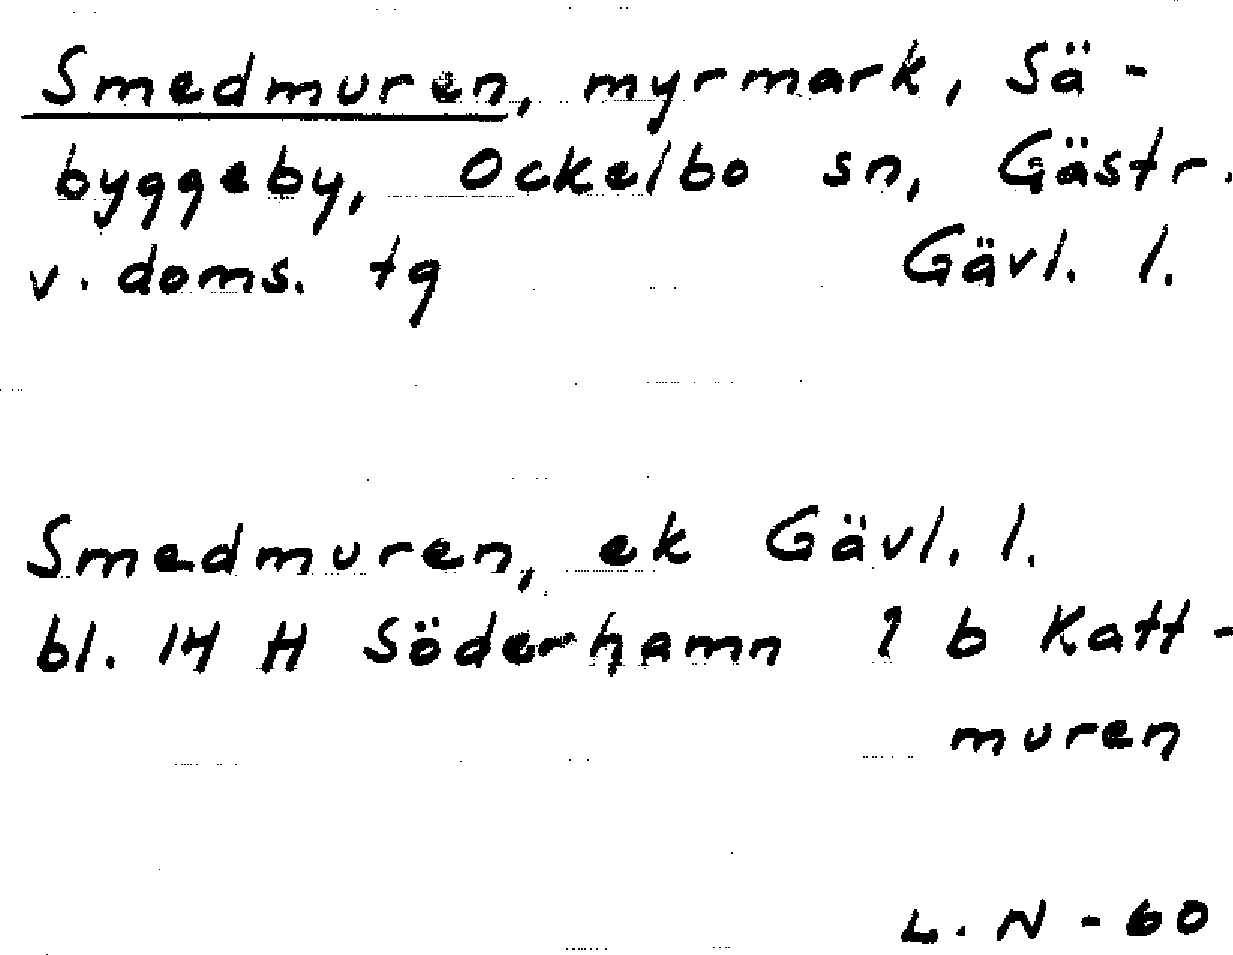 Smedmuren, myrmark, Sä-
byggeby, Ockelbo sn, Gästr.
v. doms. tg Gävl. l.
Smedmuren, ek Gävl. l.
bl. 14 H Söderhamn 1 b Katt-
muren
L. N - 60